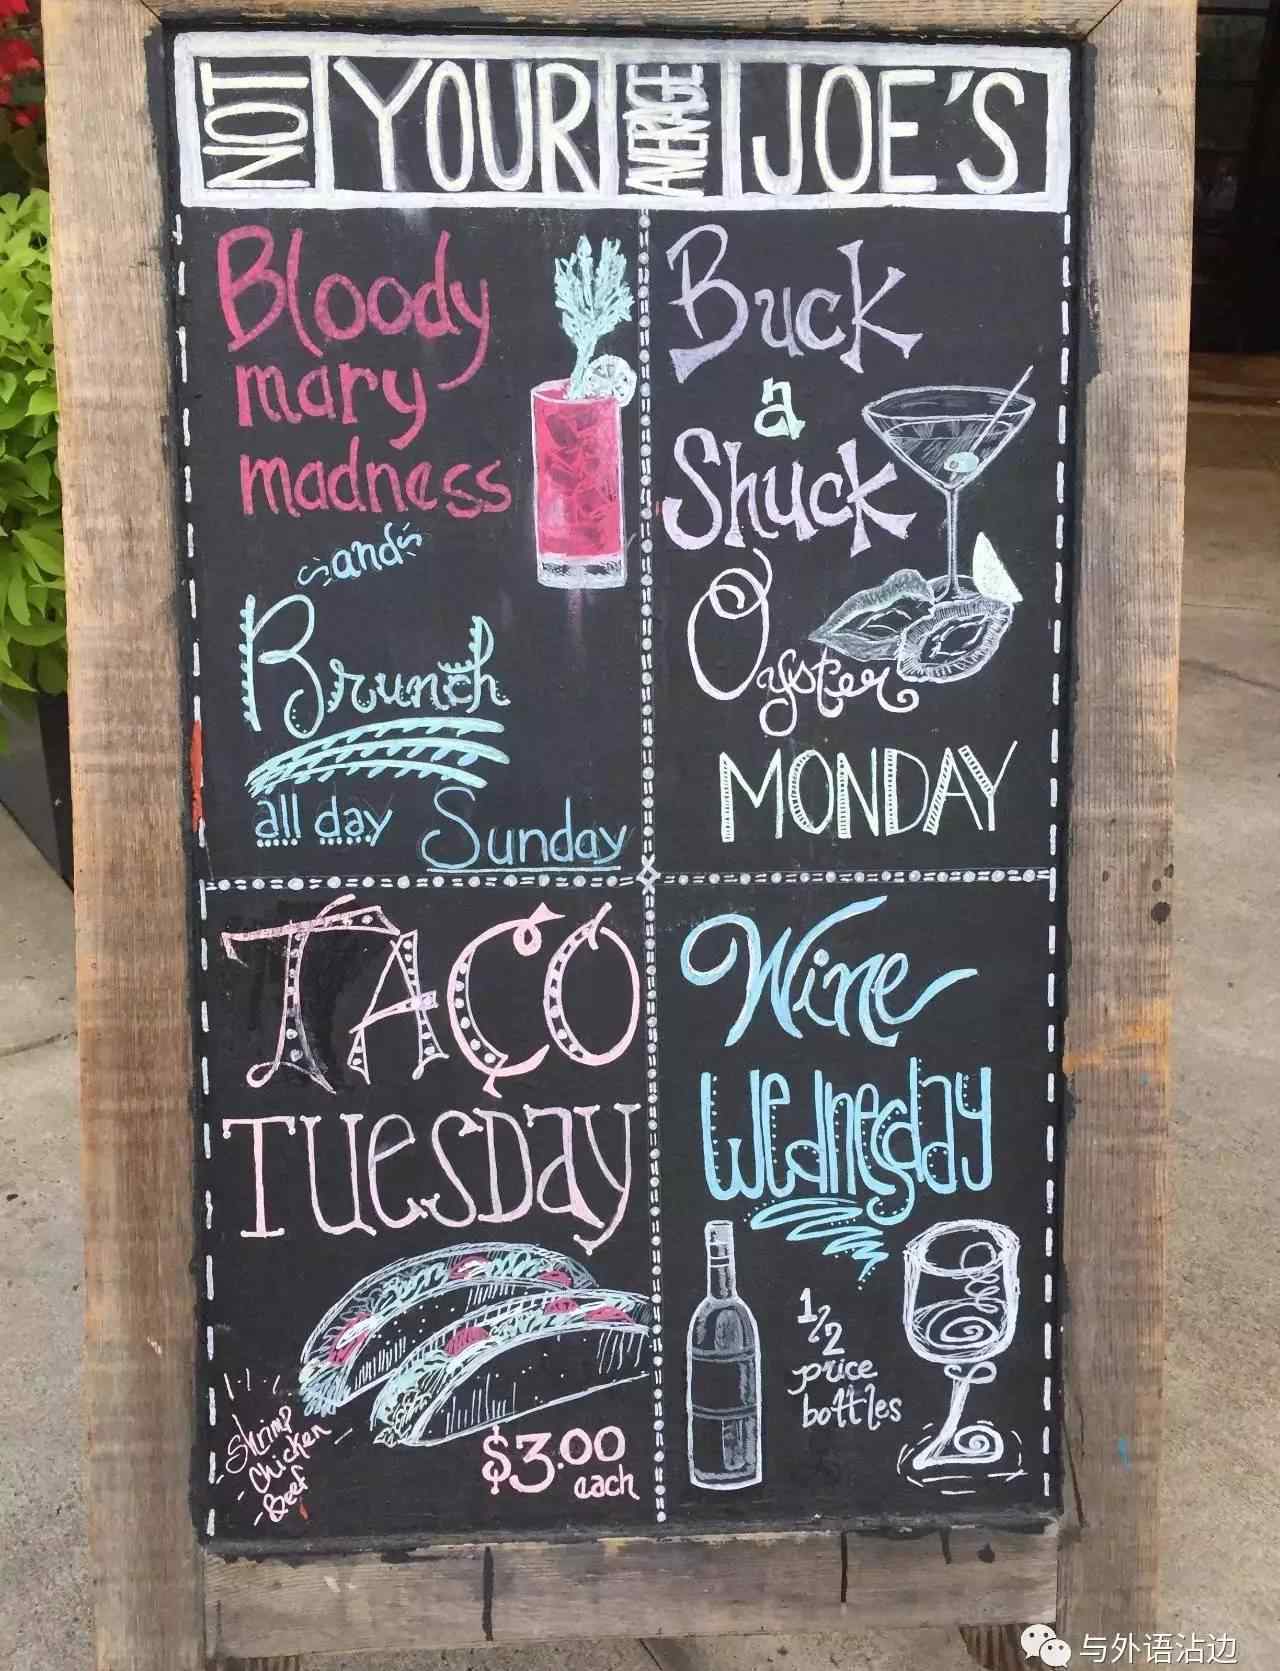 NOT YOUR AVERAGE JOE'S
Bloody
mary
madness
and
Brunch
all day Sunday
Buck
a
Shuck
Oyster
MONDAY
TACO
TUESDAY
Shrimp
Chicken
Beef
$3.00
each
Wine
Wednesday
1/2
price
bottles
与外语沾边